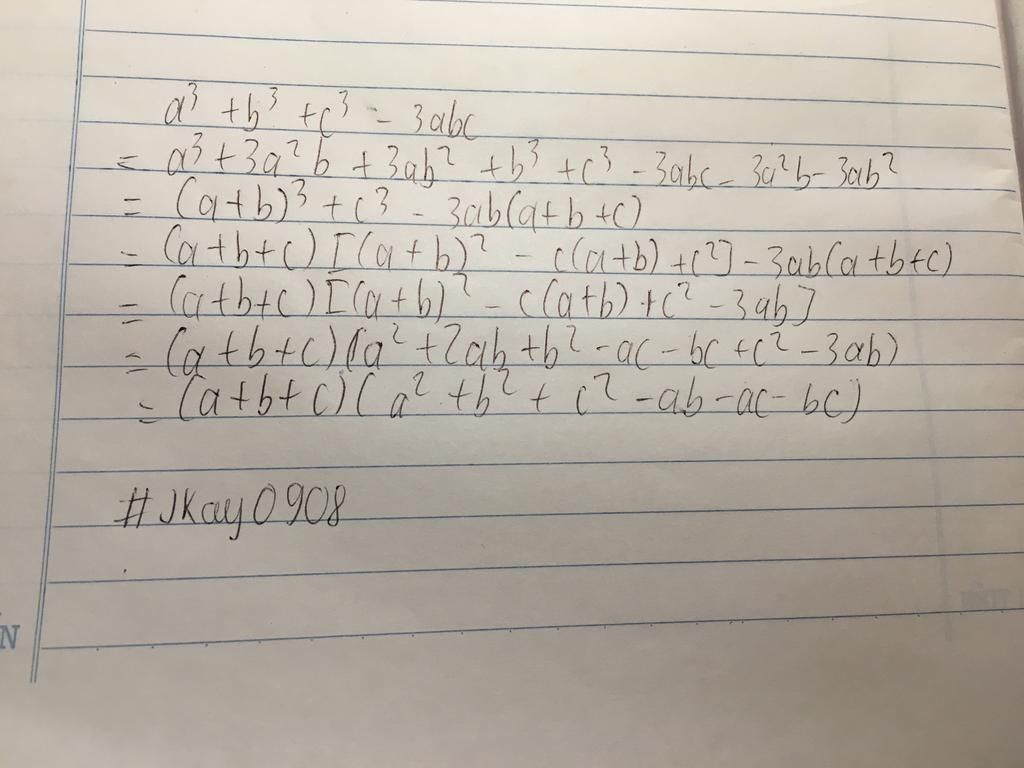 a³ + b³ + c³ - 3abc
= a³ + 3a²b + 3ab² + b³ + c³ - 3abc - 3a²b - 3ab²
= (a+b)³ + c³ - 3ab(a+b+c)
= (a+b+c)[(a+b)² - c(a+b) + c²] - 3ab(a+b+c)
= (a+b+c)[(a+b)² - c(a+b) + c² - 3ab]
= (a+b+c)(a² + 2ab + b² - ac - bc + c² - 3ab)
= (a+b+c)(a² + b² + c² - ab - ac - bc)
#JKay0908
N